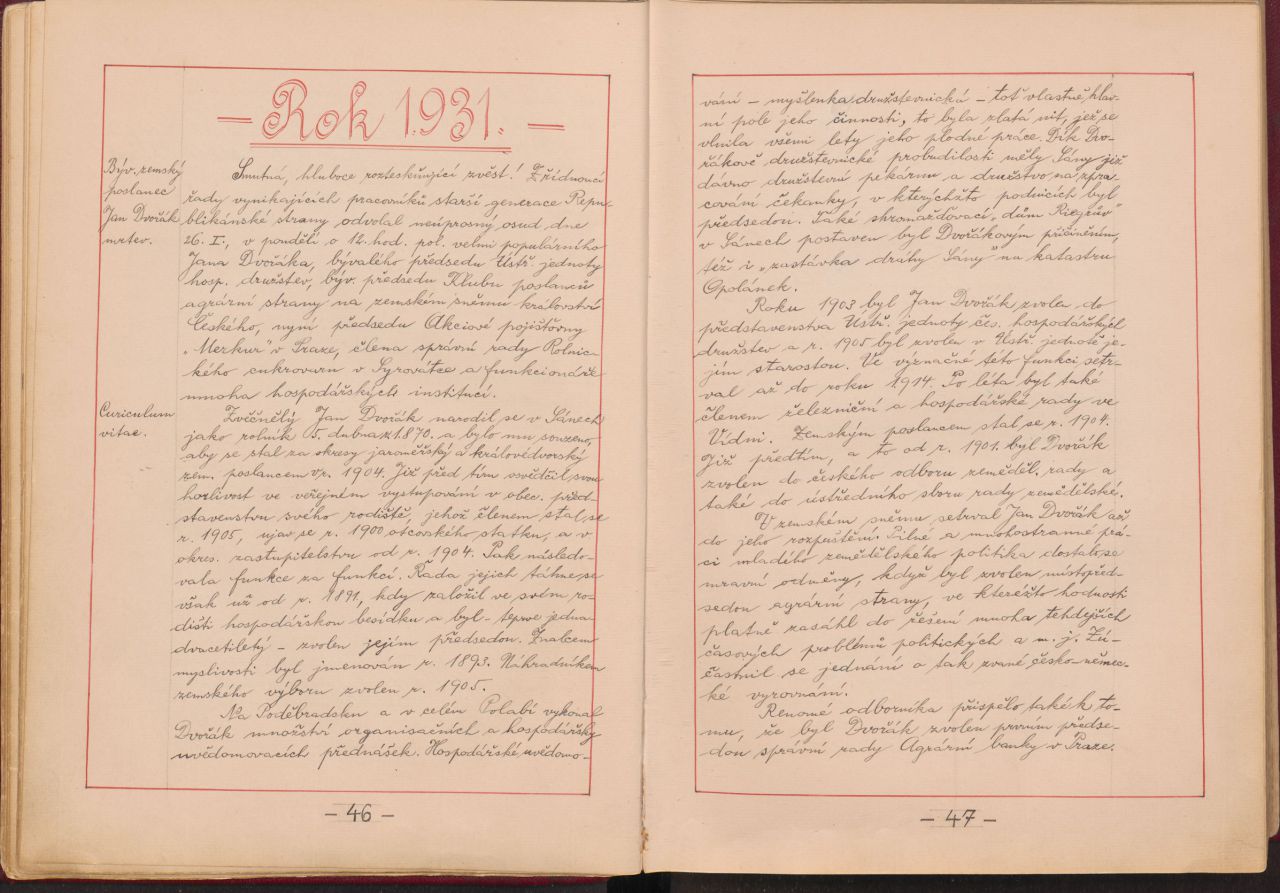 — Rok 1931. —
Býv. zemský
poslanec
Jan Dvořák
mrtev.
Smutná, hluboce rozteskňující zvěst! Zřídnoucí
řady vynikajících pracovníků starší generace Repu-
blikánské strany odvolal neúprosný osud dne
26. I., v pondělí o 12. hod. pol. velmi populárního
Jana Dvořáka, bývalého předsedu Ústř. jednoty
hosp. družstev, býv. předsedu Klubu poslanců
agrární strany na zemském sněmu království
Českého, nyní předsedu Akciové pojišťovny
"Merkur" v Praze, člena správní rady Rolnic-
kého cukrovaru v Syrovátce a funkcionáře
mnoha hospodářských institucí.
Curiculum
vitae.
Zvěčnělý Jan Dvořák narodil se v Sánech
jako rolník 5. dubna 1870. a bylo mu souzeno,
aby se stal za okresy jaroměřský a královédvorský
zem. poslancem v r. 1904. Již před tím osvědčil svou
horlivost ve veřejném vystupování v obec. před-
stavenstvu svého rodiště, jehož členem stal se
r. 1905, ujav se r. 1900 otcovského statku, a v
okres. zastupitelstvu od r. 1904. Pak následo-
vala funkce za funkcí. Řada jejich táhne se
však už od r. 1891, kdy založil ve svém ro-
dišti hospodářskou besídku a byl - teprve jedna-
dvacetiletý - zvolen jejím předsedou. Znalcem
myslivosti byl jmenován r. 1893. Náhradníkem
zemského výboru zvolen r. 1905.
Na Poděbradsku a v celém Polabí vykonal
Dvořák množství organisačních a hospodářsky
uvědomovacích přednášek. Hospodářské uvědomo-
— 46 —
vání - myšlenka družstevnická - toť vlastně hlav-
ní pole jeho činnosti, to byla zlatá nit, jež se
vlnila všemi lety jeho plodné práce. Dík Dvo-
řákově družstevnické probudilosti měly Sány již
dávno družstevní pekárnu a družstvo na zpra-
cování čekanky, v kterýchžto podnicích byl
předsedou. Také shromažďovací "dům Riegrův"
v Sánech postaven byl Dvořákovým přičiněním,
též i "zastávka dráhy Sány" na katastru
Opolánek.
Roku 1903 byl Jan Dvořák zvolen do
představenstva Ústř. jednoty čes. hospodářských
družstev a r. 1905 byl zvolen v Ústř. jednotě je-
jím starostou. Ve význačné této funkci setr-
val až do roku 1914. Po léta byl také
členem železniční a hospodářské rady ve
Vídni. Zemským poslancem stal se r. 1904.
Již předtím, a to od r. 1901. byl Dvořák
zvolen do českého odboru zeměděl. rady a
také do ústředního sboru rady zemědělské.
V zemském sněmu setrval Jan Dvořák až
do jeho rozpuštění. Pilné a mnohostranné prá-
ci mladého zemědělského politika dostalo se
mravní odměny, když byl zvolen místopřed-
sedou agrární strany, ve kterežto hodnosti
platně zasáhl do řešení mnoha tehdejších
časových problémů politických a m. j. Zú-
častnil se jednání a tak zvané česko-němec-
ké vyrovnání.
Renomé odborníka přispělo také k to-
mu, že byl Dvořák zvolen prvním předse-
dou správní rady Agrární banky v Praze.
— 47 —